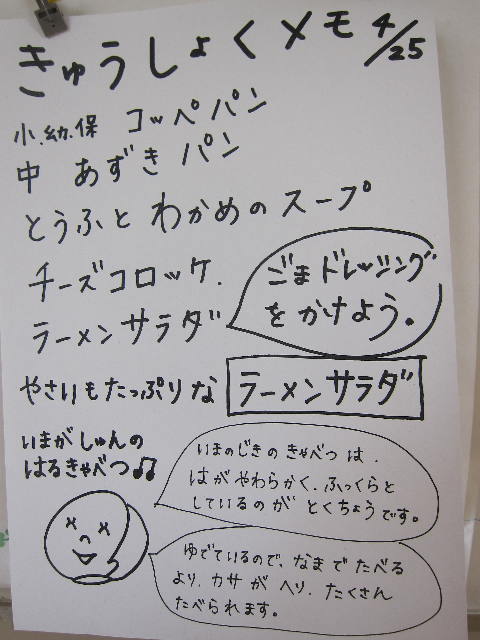 きゅうしょくメモ 4/25
小.幼.保 コッペパン
中 あずきパン
とうふとわかめのスープ
チーズコロッケ.
ラーメンサラダ
ごまドレッシング
をかけよう。
やさいもたっぷりな ラーメンサラダ
いまがしゅんの
はるきゃべつ♫
いまのじきのきゃべつは、
はがやわらかく、ふっくらと
しているのがとくちょうです。
ゆでているので、なまでたべる
より、カサがへり、たくさん
たべられます。